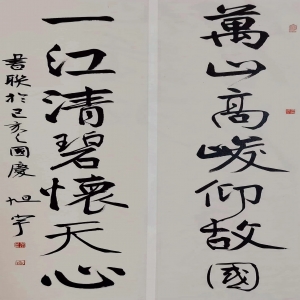 萬山高峻仰故國
一江清碧懷天心
書联於己亥國慶
旭宇